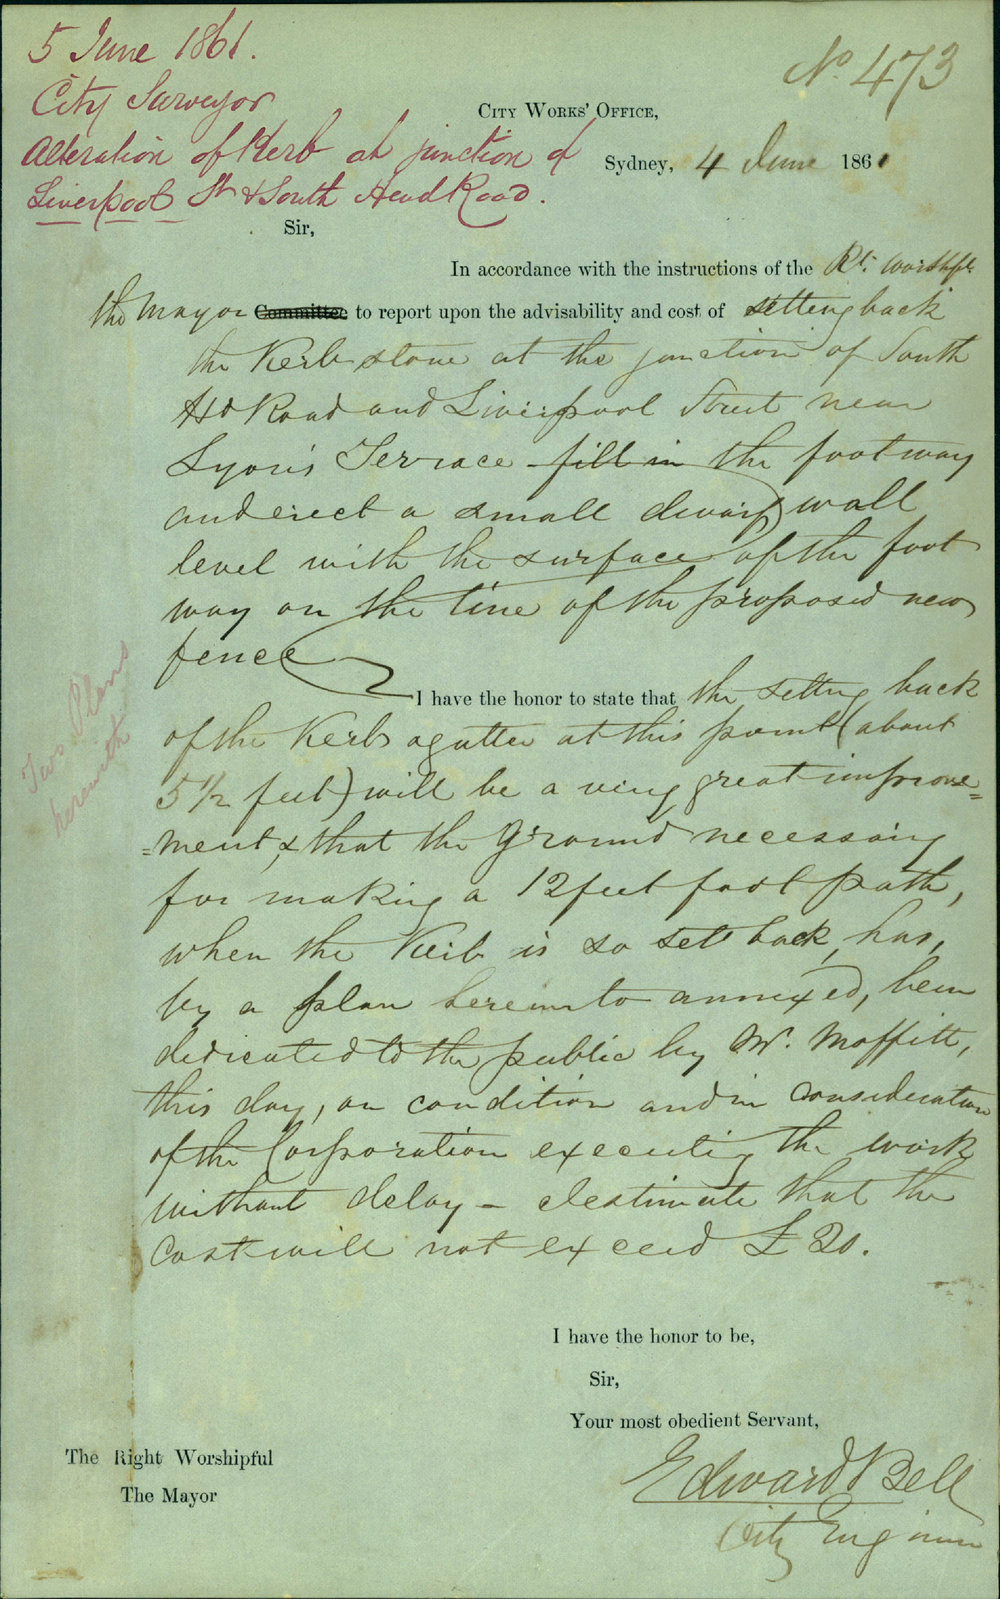 5 June 1861.
City Surveyor
Alteration of Kerb at junction of
Liverpool St & South Head Road.
No 473
City Works' Office,
Sydney, 4 June 1861
Sir,
In accordance with the instructions of the Rt. Worshpl.
the Mayor Committee to report upon the advisability and cost of setting back
the Kerb stone at the junction of South
Hd Road and Liverpool Street near
Lyons Terrace fill in the footway
and erect a small dwarf wall
level with the surface of the foot
way on the line of the proposed new
fence
I have the honor to state that the setting back
of the Kerb & gutter at this point (about
5 1/2 feet) will be a very great improve=
=ment, & that the ground necessary
for making a 12 feet foot path,
when the Kerb is so set back, has,
by a plan hereunto annexed, been
dedicated to the public by Mr. Moffitt,
this day, on condition and in consideration
of the Corporation executing the work
without delay – I estimate that the
Cost will not exceed £20.
Two Plans
herewith
I have the honor to be,
Sir,
Your most obedient Servant,
Edward Bell
City Engineer
The Right Worshipful
The Mayor